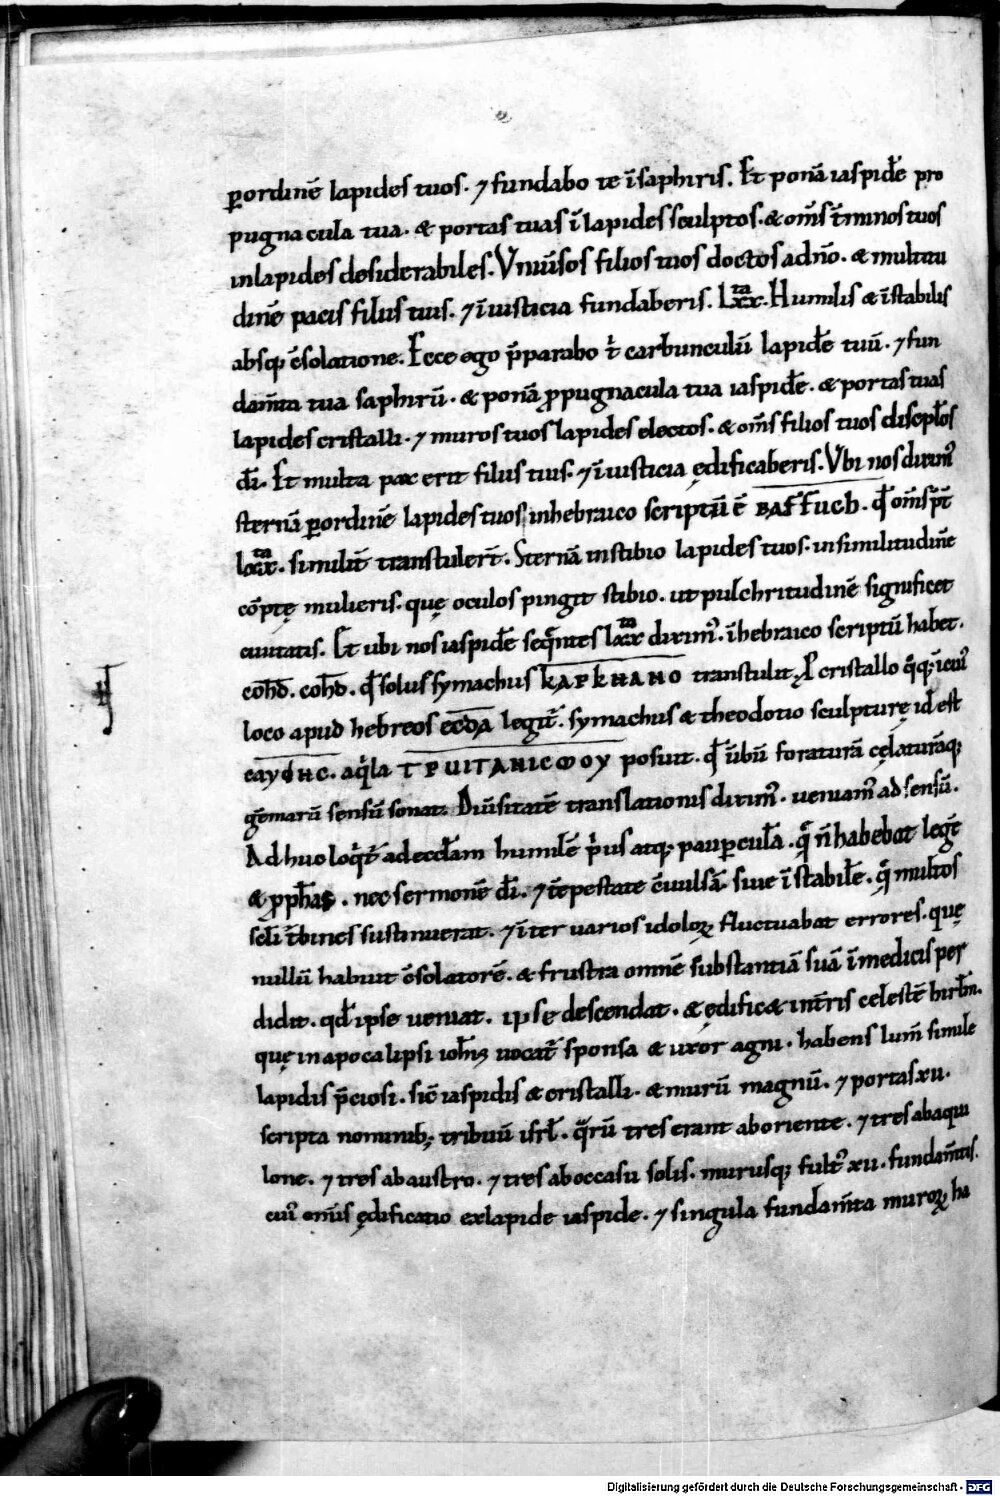 ꝑordinē lapides tuos. ⁊ fundabo te ī saphiris. Et ponā iaspidē pro
pugnacula tua. & portas tuas ī lapides sculptos. & om̄s t̄minos tuos
in lapides desiderabiles. Vniūsos filios tuos doctos a dn̄o. & multitu
dinē pacis filiis tuis. ⁊ ī iusticia fundaberis. Lxxᵗᵃ. Humilis & īstabilis
absq; c̄solatione. Ecce ego p̄parabo t̄ carbunculū lapidē tuū. ⁊ fun
dam̄ta tua saphirū. & ponā ꝓpugnacula tua iaspidē. & portas tuas
lapides cristalli. ⁊ muros tuos lapides electos. & om̄s filios tuos discipl̄os
dī. Et multa pax erit filiis tuis. ⁊ ī iusticia ędificaberis. Vbi nos diximꝰ
sternā ꝑordinē lapides tuos in hebraico scriptū ē BAFFUCH. qđ om̄s p̄t
lxxᵗᵃ. similit̄ transtuler̄t. Sternā in stibio lapides tuos. in similitudinē
cōptę mulieris. quę oculos pingit stibio. ut pulchritudinē significet
ciuitatis. Et ubi nos iaspidē seq̄ntes lxxᵗᵃ diximꝰ. ī hebraico scriptū habet.
coh̄d. coh̄d. qđ solus symachus KAPKHAHO transtulit. P cristallo qͦq; īcuiꝰ
loco apud hebreos ecdA legit̄. symachus & theodotio sculpturę id est
ΓΑΥΦΗC. aqͥla ΤΡUΙΤΑΝΙCΜΟΥ posuit. qđ ūbū foraturā cęlaturāq;
gēmarū sensū sonat. Diūsitatē translationis diximꝰ. ueniamꝰ ad sensū.
Ad huc loqͥt̄ ad eccl̄am humilē pͥus atq; pauꝑculā. q̄ n̄ habebat legē
& ꝓph̄as. nec sermonē dī. ⁊ tēpestate c̄uulsā. siue īstabilē. q̄ multos
scl̄i t̄bines sustinuerat. ⁊ īter uarios idoloꝝ fluctuabat errores. quę
nullū habuit c̄solatorē. & frustra omnē substantiā suā ī medicis per
didit. qđ ipse ueniat. ipse descendat. & ędific& in t̄ris celestē hirl̄m.
quę in apocalipsi ioh̄is uocat̄ sponsa & uxor agni. habens lum̄ simile
lapidis p̄ciosi. sic̄ iaspidis & cristalli. & murū magnū. ⁊ portas xii.
scripta nominib; tribuū isrl̄. q̄rū tres erant ab oriente. ⁊ tres ab aqui
lone. ⁊ tres ab austro. ⁊ tres ab occasu solis. murusq; fult̄ xii. fundam̄tis.
cuiꝰ om̄is ędificatio ex lapide iaspide. ⁊ singula fundam̄ta muroꝝ ha
Digitalisierung gefördert durch die Deutsche Forschungsgemeinschaft - DFG